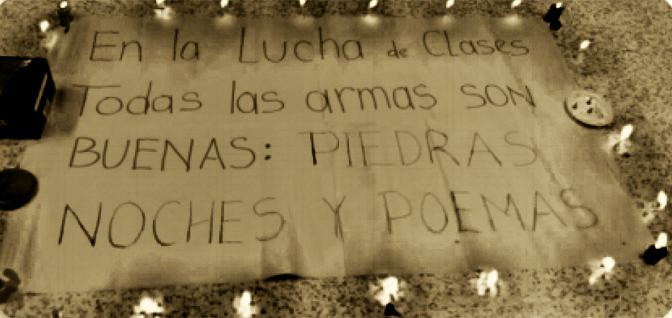 En la Lucha de Clases
Todas las armas SON
BUENAS: PIEDRAS
NOCHES Y POEMAS